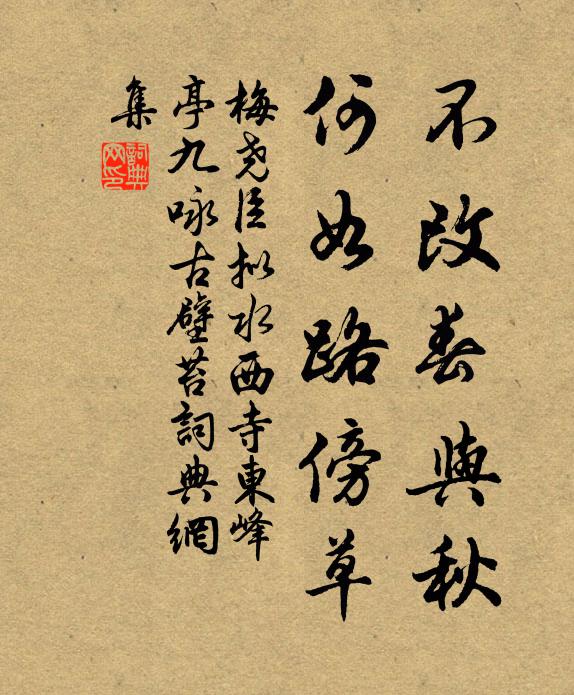 不改春與秋
何如路傍草
梅堯臣擬水西寺東峰
亭九咏古壁苔詞典網
集
詞典網印